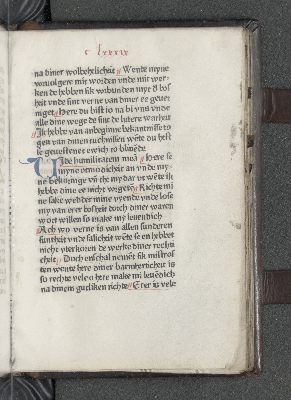 c lxxxix
na diner wolbehelicheit Wente myne
voruolgere mit worden unde mit wer-
ken de hebben sik vorbunden mye d bos
heit unde sint verne van diner ee gewei
niget Here du bist io na bi uns unde
alle dine wege de sint de lutere warheit
Ik hebbe van anbeginne bekantnisse to
gen van dinen tuchnissen wente du hest
se geuestenet ewich to bliuede
Vide humilitatem meam Here se
myne otmodicheit an unde my-
ne bekoringe unde the my dar ut wente ik
hebbe dine ee nicht vorgeten Richte mi
ne sake wedder mine vyende unde lose
my van erer bosheit doch diner waren
wort willen so make my leuendich
Ach wo verne is van allen sunderen
suntheit unde salicheit wente se en hebbet
nicht vterkoren de werke diner rechti
cheit Doch enschal nement sik mistros
ten wente here diner barmherticheit is
so rechte vele o here make mi leuendich
na dinem gutliken richte Erer is vele